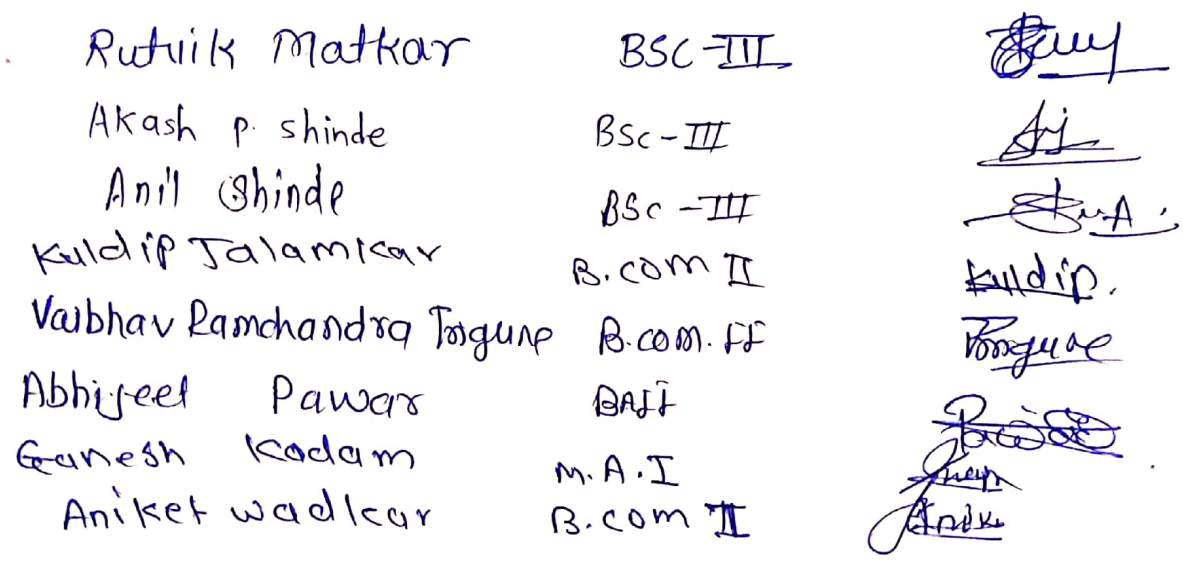 Rutvik Matkar BSC-III
Akash P. Shinde BSc-III
Anil Shinde BSc-III
Kuldip Jalamkar B.com II Kuldip.
Vaibhav Ramchandra Torgune B.com. II Torgune
Abhijeet Pawar BAII
Ganesh Kadam M.A.I
Aniket wadkar B.com II